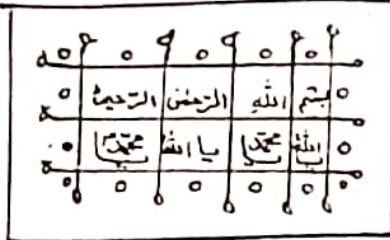 بسم الله الرحمن الرحيم
يا الله يا محمد يا الله يا محمد